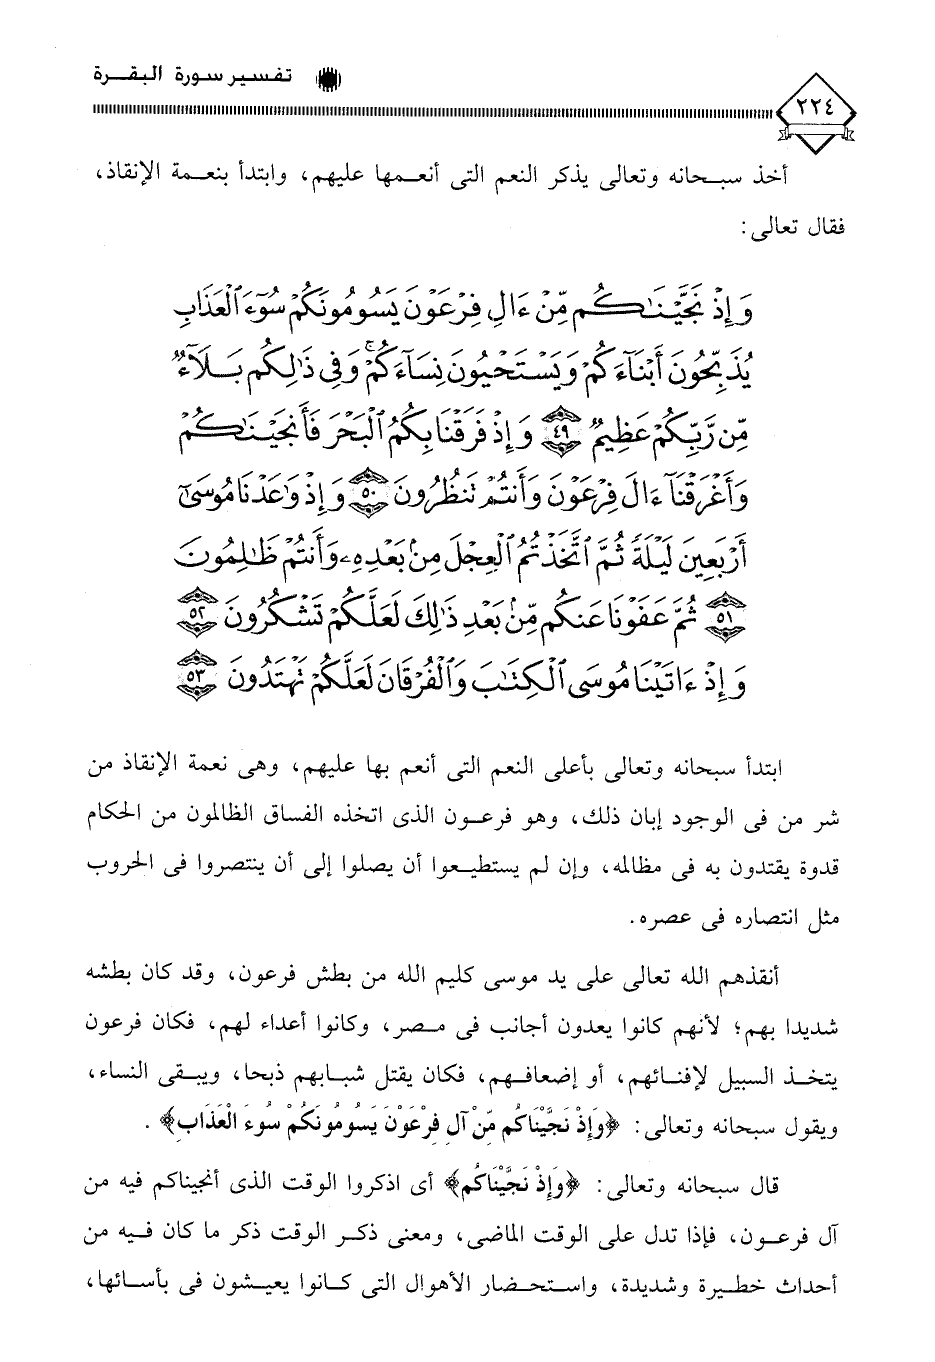 تفسير سورة البقرة
٢٢٤
أخذ سبحانه وتعالى يذكر النعم التى أنعمها عليهم، وابتدأ بنعمة الإنقاذ،
فقال تعالى:
وَإِذْ نَجَّيْنَٰكُم مِّنْ ءَالِ فِرْعَوْنَ يَسُومُونَكُمْ سُوٓءَ ٱلْعَذَابِ
يُذَبِّحُونَ أَبْنَآءَكُمْ وَيَسْتَحْيُونَ نِسَآءَكُمْ ۚ وَفِى ذَٰلِكُم بَلَآءٌ
مِّن رَّبِّكُمْ عَظِيمٌ ٤٩ وَإِذْ فَرَقْنَا بِكُمُ ٱلْبَحْرَ فَأَنجَيْنَٰكُمْ
وَأَغْرَقْنَآ ءَالَ فِرْعَوْنَ وَأَنتُمْ تَنظُرُونَ ٥٠ وَإِذْ وَٰعَدْنَا مُوسَىٰٓ
أَرْبَعِينَ لَيْلَةً ثُمَّ ٱتَّخَذْتُمُ ٱلْعِجْلَ مِنۢ بَعْدِهِۦ وَأَنتُمْ ظَٰلِمُونَ
٥١ ثُمَّ عَفَوْنَا عَنكُم مِّنۢ بَعْدِ ذَٰلِكَ لَعَلَّكُمْ تَشْكُرُونَ ٥٢
وَإِذْ ءَاتَيْنَا مُوسَى ٱلْكِتَٰبَ وَٱلْفُرْقَانَ لَعَلَّكُمْ تَهْتَدُونَ ٥٣
ابتدأ سبحانه وتعالى بأعلى النعم التى أنعم بها عليهم، وهى نعمة الإنقاذ من
شر من فى الوجود إبان ذلك، وهو فرعون الذى اتخذه الفساق الظالمون من الحكام
قدوة يقتدون به فى مظالمه، وإن لم يستطيعوا أن يصلوا إلى أن ينتصروا فى الحروب
مثل انتصاره فى عصره.
أنقذهم الله تعالى على يد موسى كليم الله من بطش فرعون، وقد كان بطشه
شديدا بهم؛ لأنهم كانوا يعدون أجانب فى مصر، وكانوا أعداء لهم، فكان فرعون
يتخذ السبيل لإفنائهم، أو إضعافهم، فكان يقتل شبابهم ذبحا، ويبقى النساء،
ويقول سبحانه وتعالى: ﴿وَإِذْ نَجَّيْنَاكُم مِّنْ آلِ فِرْعَوْنَ يَسُومُونَكُمْ سُوءَ الْعَذَابِ﴾ .
قال سبحانه وتعالى: ﴿وَإِذْ نَجَّيْنَاكُم﴾ أى اذكروا الوقت الذى أنجيناكم فيه من
آل فرعون، فإذا تدل على الوقت الماضى، ومعنى ذكر الوقت ذكر ما كان فيه من
أحداث خطيرة وشديدة، واستحضار الأهوال التى كانوا يعيشون فى بأسائها،